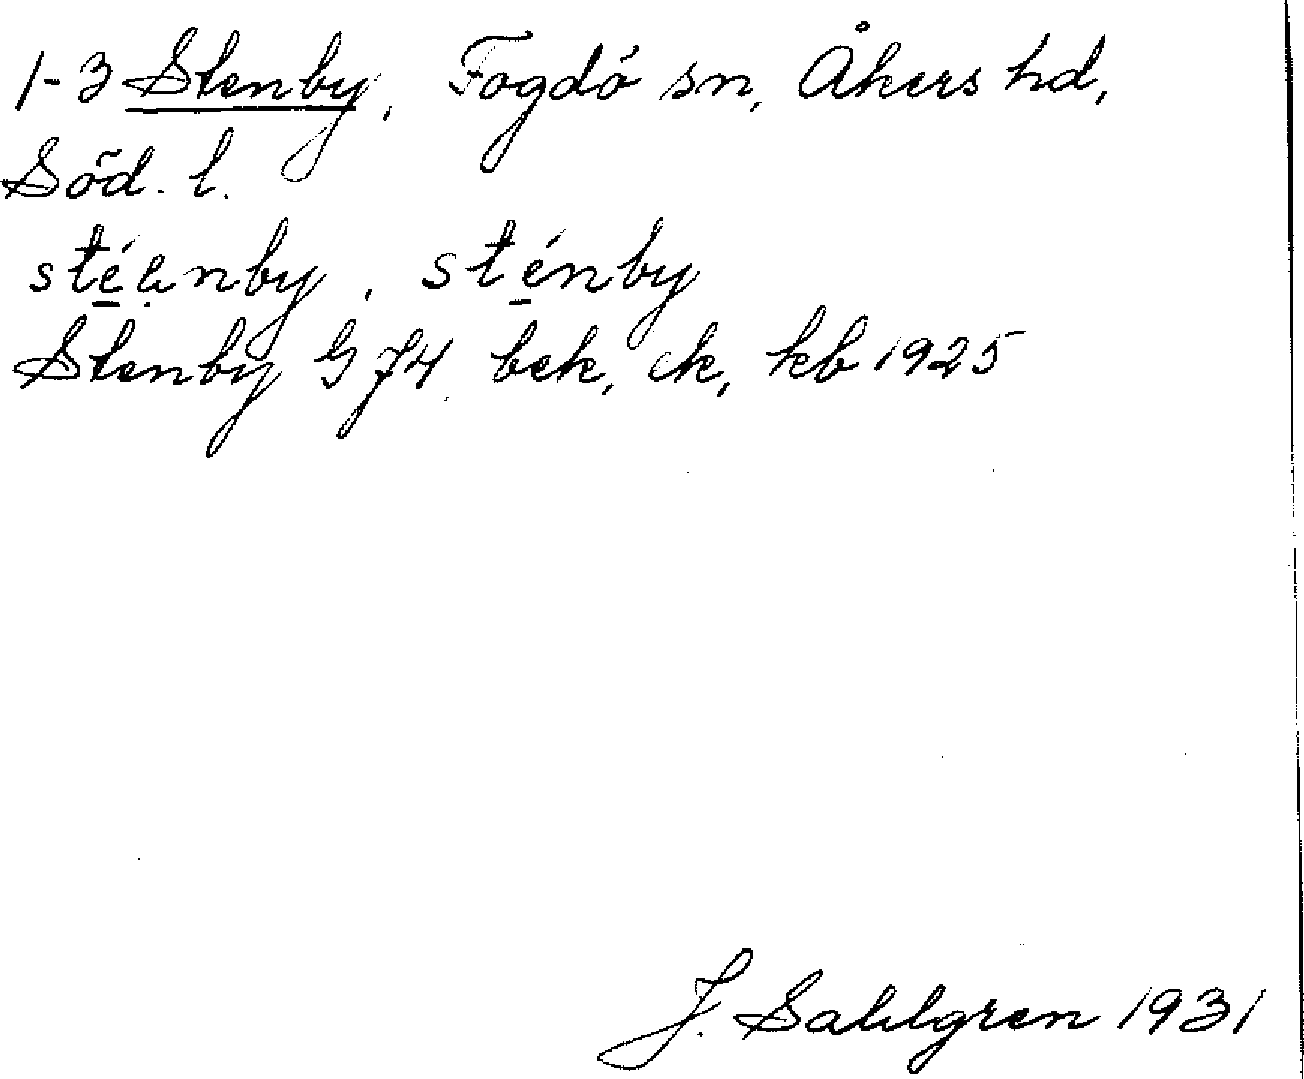 1-3 Stenby, Fogdö sn, Åkers hd,
Söd. l.
sténby
Stenby G 74 bek, ck, kb 1925
J. Sahlgren 1931